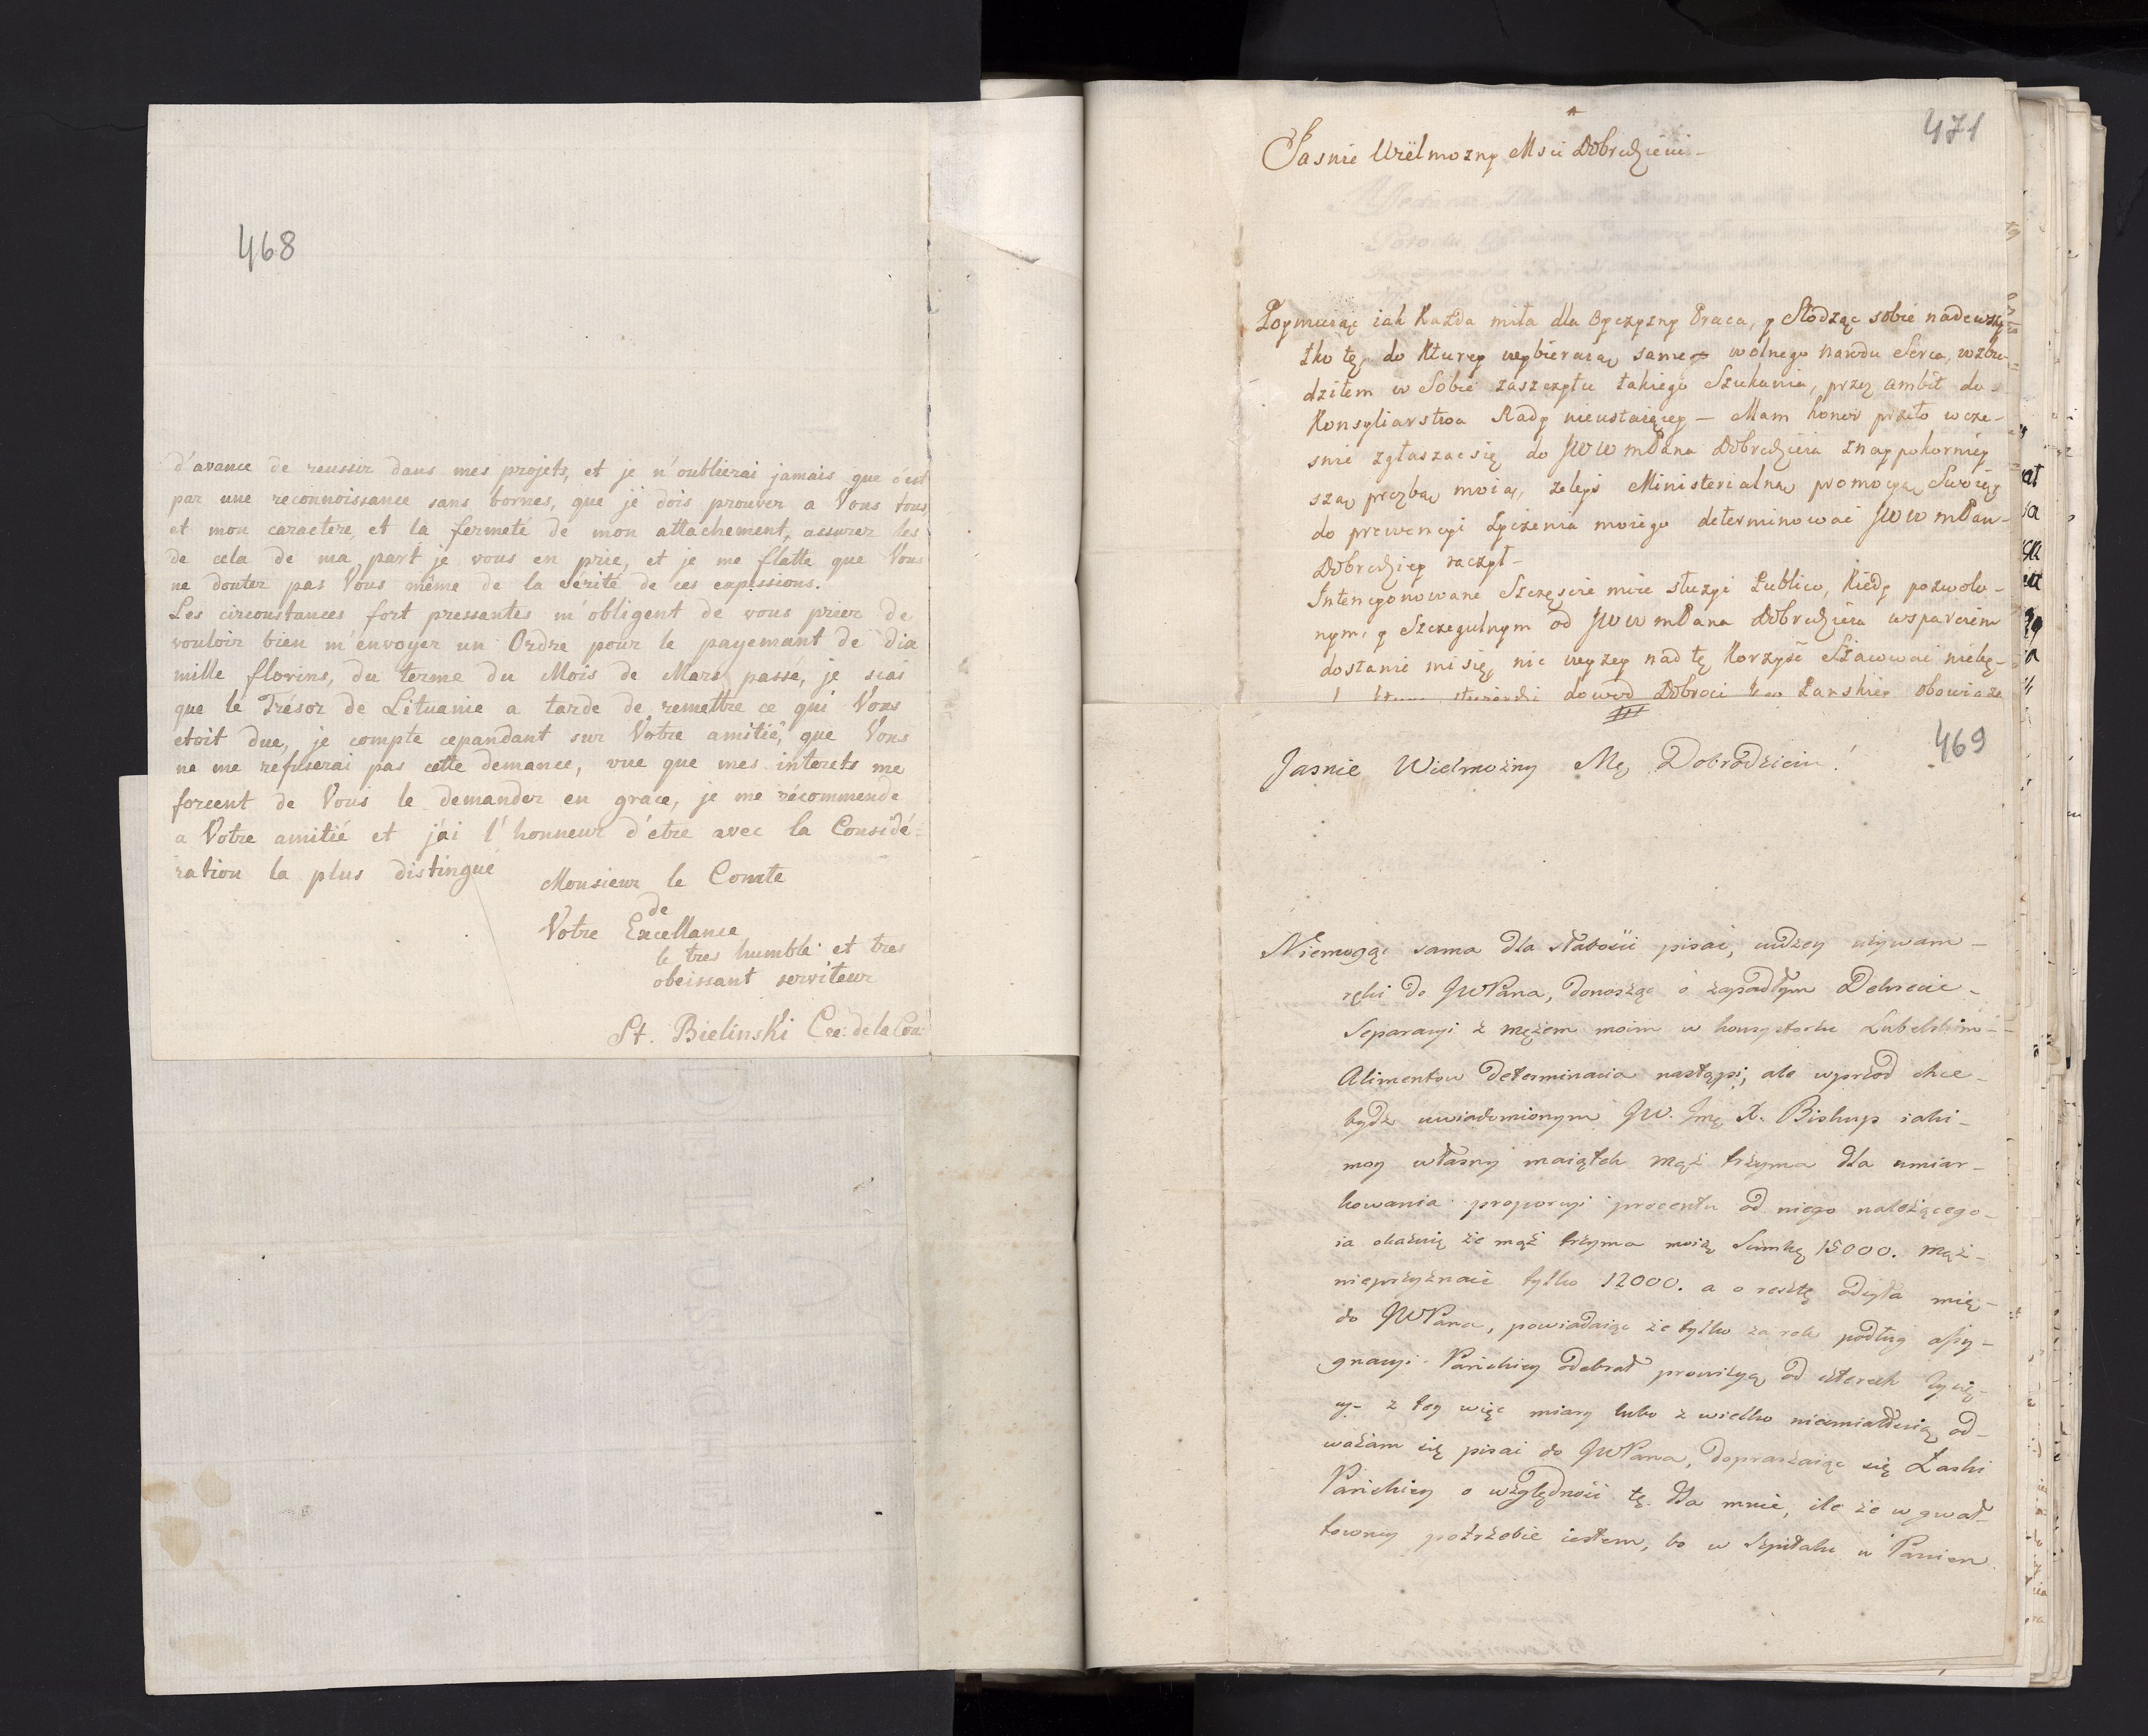 468
d'avance de reussir dans mes projets, et je n'oublierai jamais que c'est
par une reconnoissance sans bornes, que je dois prouver a Vous tous
et mon caractere, et la fermeté de mon attachement, assurer les
de cela de ma part je vous en prie, et je me flatte que Vous
ne douter pas Vous même de la vérité de ces expressions.
Les circonstances fort pressantes m'obligent de vous prier de
vouloir bien m'envoyer un Ordre pour le payemant de dia
mille florins, du terme du Mois de Mars passé, je scai
que le Trésor de Lituanie a tarde de remettre ce qui Vous
etoit due, je compte cepandant sur Votre amitié, que Vous
ne me refuserai pas cette demance, vue que mes interets me
forcent de Vous le demander en grace, je me récommende
a Votre amitié et j'ai l'honneur d'etre avec la Considé-
ration la plus distingué
Monsieur le Comte
de
Votre Excellance
le tres humble et tres
obeissant serviteur
St. Bielinski Cre: de la Cou:
471
Jasnie Wielmozny Msci Dobrodzieiu
Poymuiąc iak Każda miła dla Oyczyzny Praca, y Słodząc sobie nadewszy
tko tę, do Kturey wybieraią same wolnego narodu Serca, wzbu-
dziłem w Sobie zaszczytu takiego Szukania, przez ambit do
Konsyliarstwa Rady nieustaiącey – Mam honor przeto wcze-
snie zgłaszac się do JWWmPana Dobrodzieia z naypokorniey
szą prozbą moią, zebyś Ministerialną promocyą Swoią
do prewencyi życzenia moiego determinowac JWWmPan
Dobrodziey raczył –
Intencyonowane Szczęscie moie służyć Publico, Kiedy pozwolo-
nym, y Szczegulnym od JWWmPana Dobrodzieia wsparciem
dostanie mi się, nic wyzey nad tę Korzyść Szacowac niebę-
dowod Dobroci Jego Panskiey obowiąze
469
Jasnie Wielmożny Mci Dobrodzieiu!
Niemogąc sama dla słabości pisać, cudzey używam
ręki do JWPana, donosząc o zapadłym Dekrecie
Separacyi z mężem moim w konsystorzu Lubelskim
Alimentow determinacia nastąpi, ale wprzod chce
bydź uwiadomionym JW. Jmć X. Biskup iaki
moy własny maiątek mąż trzyma dla umiar-
kowania proporcyi procentu od niego należącego
ia okazuię że mąż trzyma moię Summę 15000. mąż
nieprzyznaie tylko 12000. a o resztę odsyła mię
do JWPana, powiadaiąc że tylko za rok podług assy-
gnacyi Pańskiey odebrał prowizyą od czterech tysię-
cy – z tey więc miary lubo z wielką niesmiałością od-
ważam się pisać do JWPana, dopraszaiąc się Łaski
Pańskiey o względność tę dla mnie, ile że w gwał-
towney potrzebie iestem, bo w Szpitalu u Panien